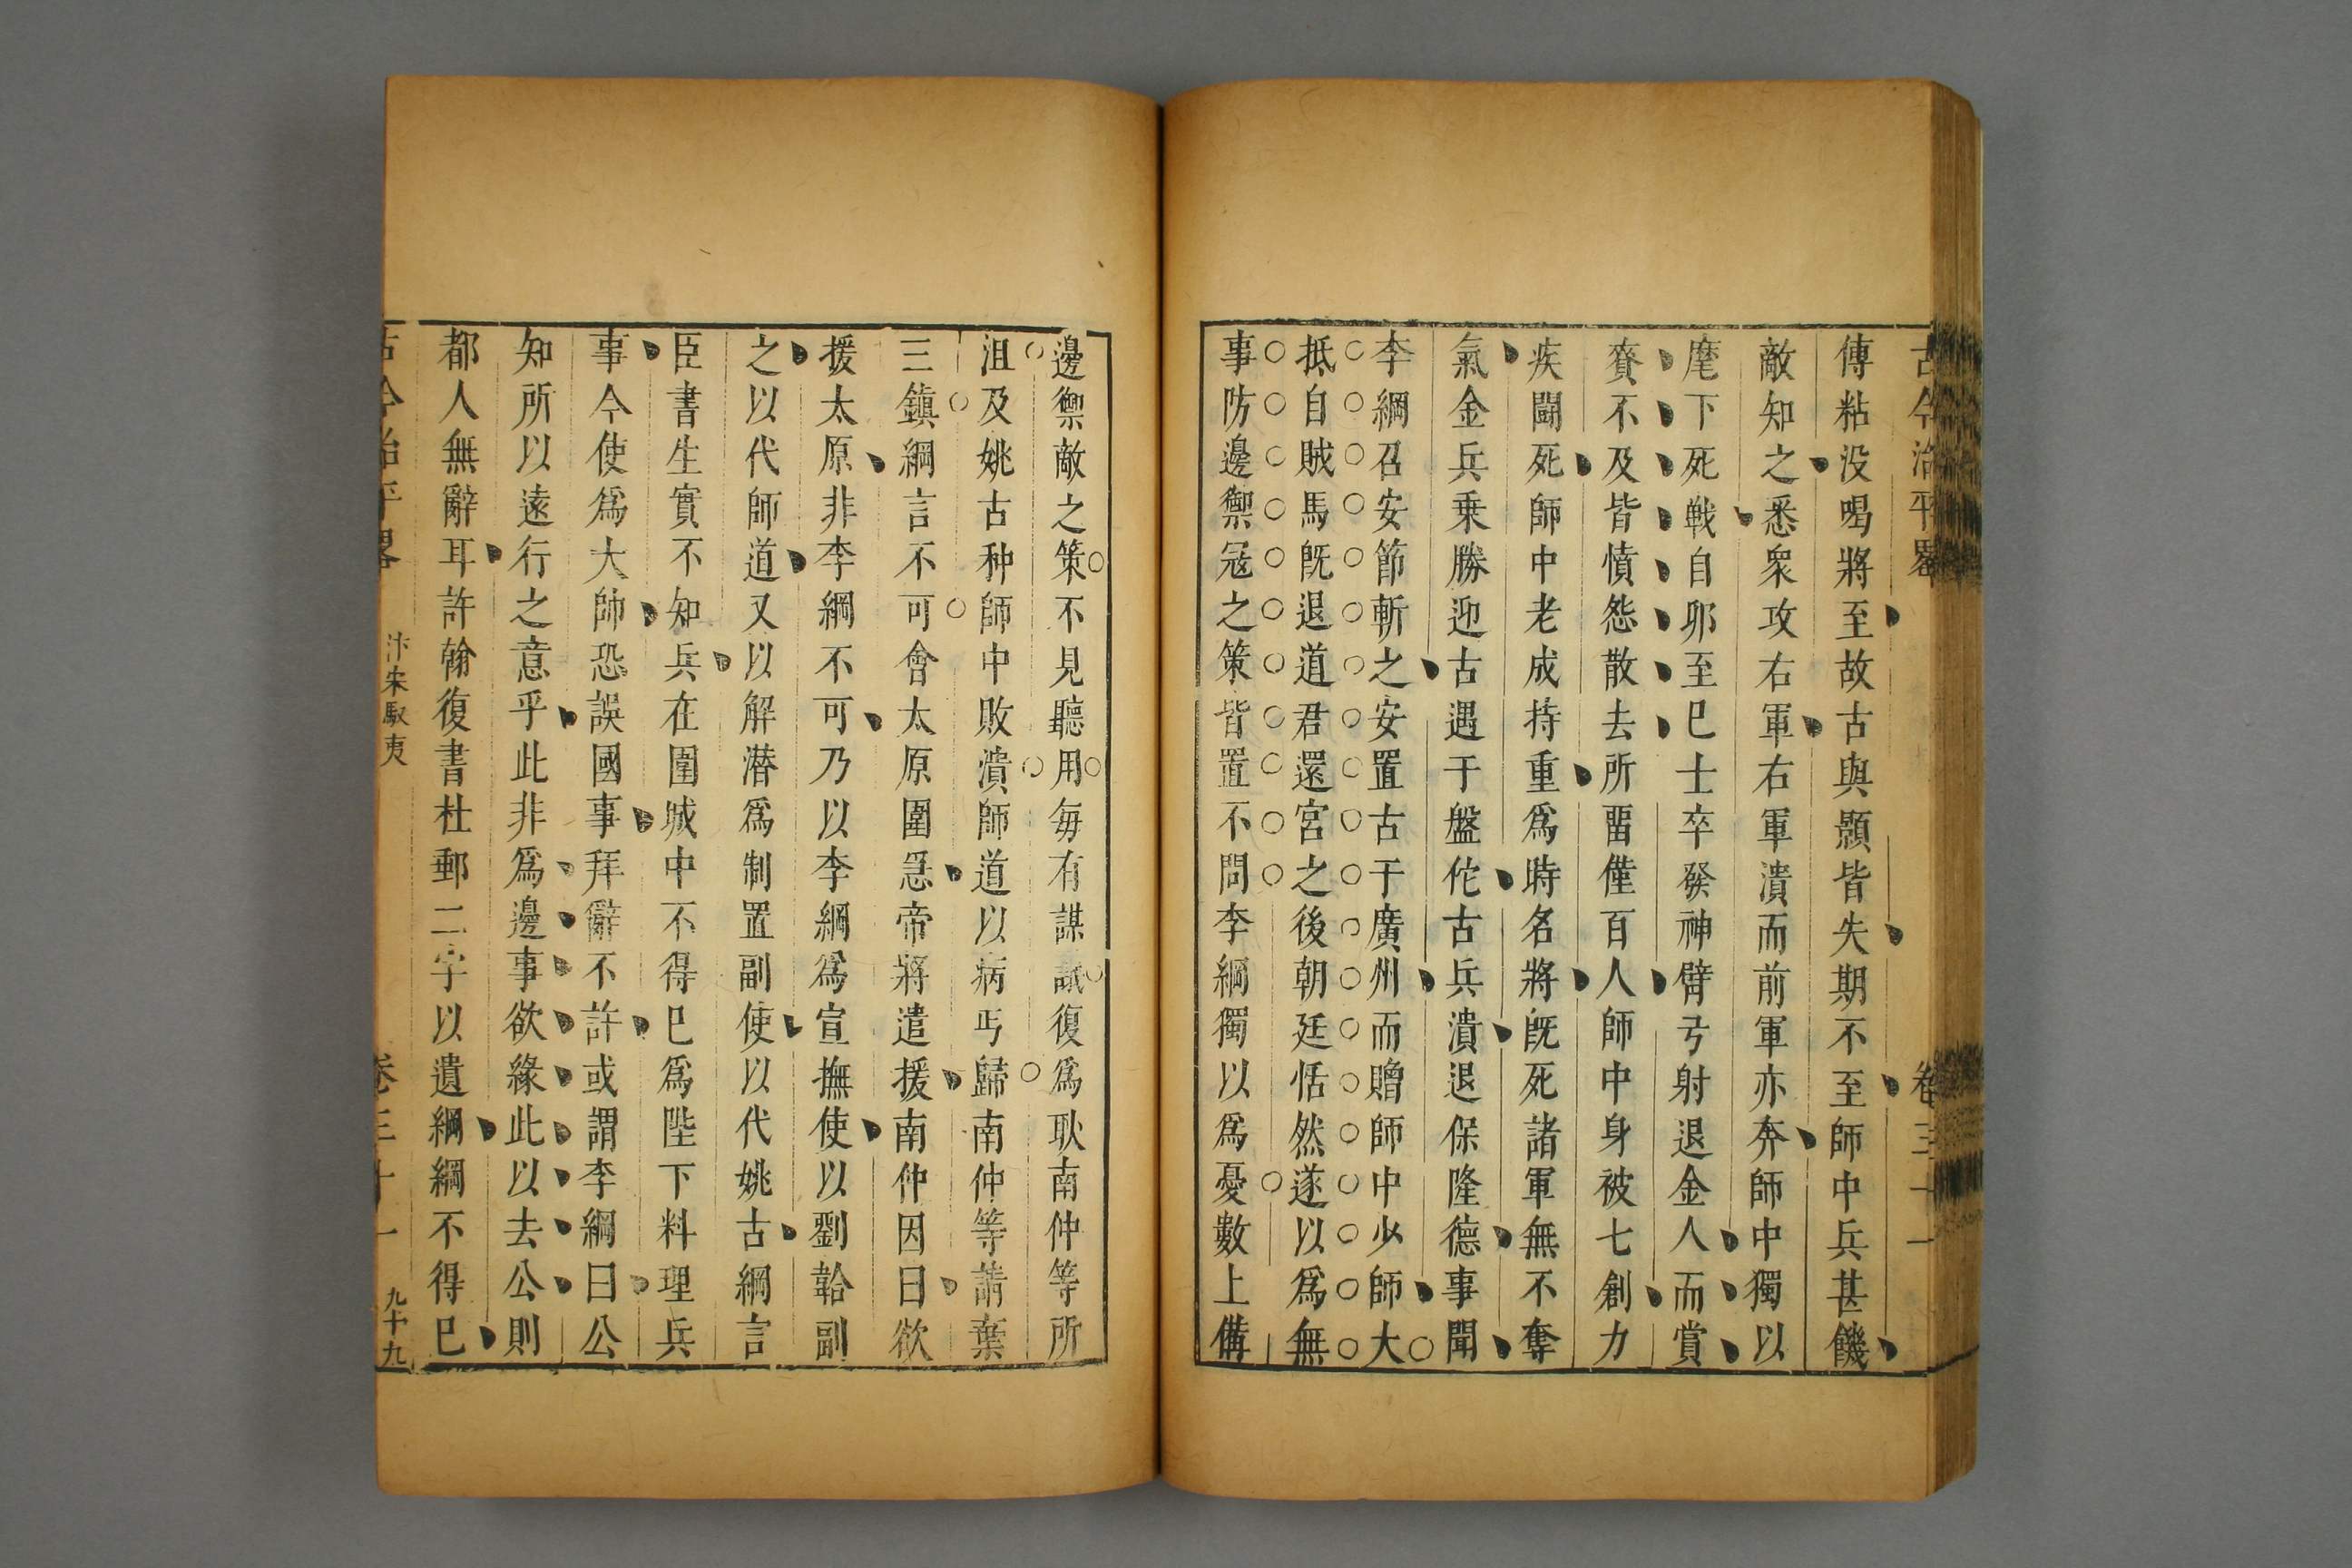 古今治平畧 卷三十一
傳粘没喝將至故古與顥皆失期不至師中兵甚饑
敵知之悉衆攻右軍右軍潰而前軍亦奔師中獨以
麾下死戰自夘至巳士卒發神臂弓射退金人而賞
賚不及皆憤怨散去所畱僅百人師中身被七創力
疾鬭死師中老成持重爲時名將旣死諸軍無不奪
氣金兵乗勝迎古遇于盤佗古兵潰退保隆德事聞
李綱召安節斬之安置古于廣州而贈師中少師大
抵自賊馬旣退道君還宮之後朝廷恬然遂以爲無
事防邊禦冦之策皆置不問李綱獨以爲憂數上備
邊禦敵之策不見聽用每有謀議復爲耿南仲等所
沮及姚古种師中敗潰師道以病丐歸南仲等請棄
三鎮綱言不可會太原圍急帝將遣援南仲因曰欲
援太原非李綱不可乃以李綱爲宣撫使以劉韐副
之以代師道又以解潜爲制置副使以代姚古綱言
臣書生實不知兵在圍城中不得巳爲陛下料理兵
事今使爲大帥恐誤國事拜辭不許或謂李綱曰公
知所以遠行之意乎此非爲邊事欲緣此以去公則
都人無辭耳許翰復書杜郵二字以遺綱綱不得巳
古今治平畧 汴宋馭夷 卷三十一 九十九